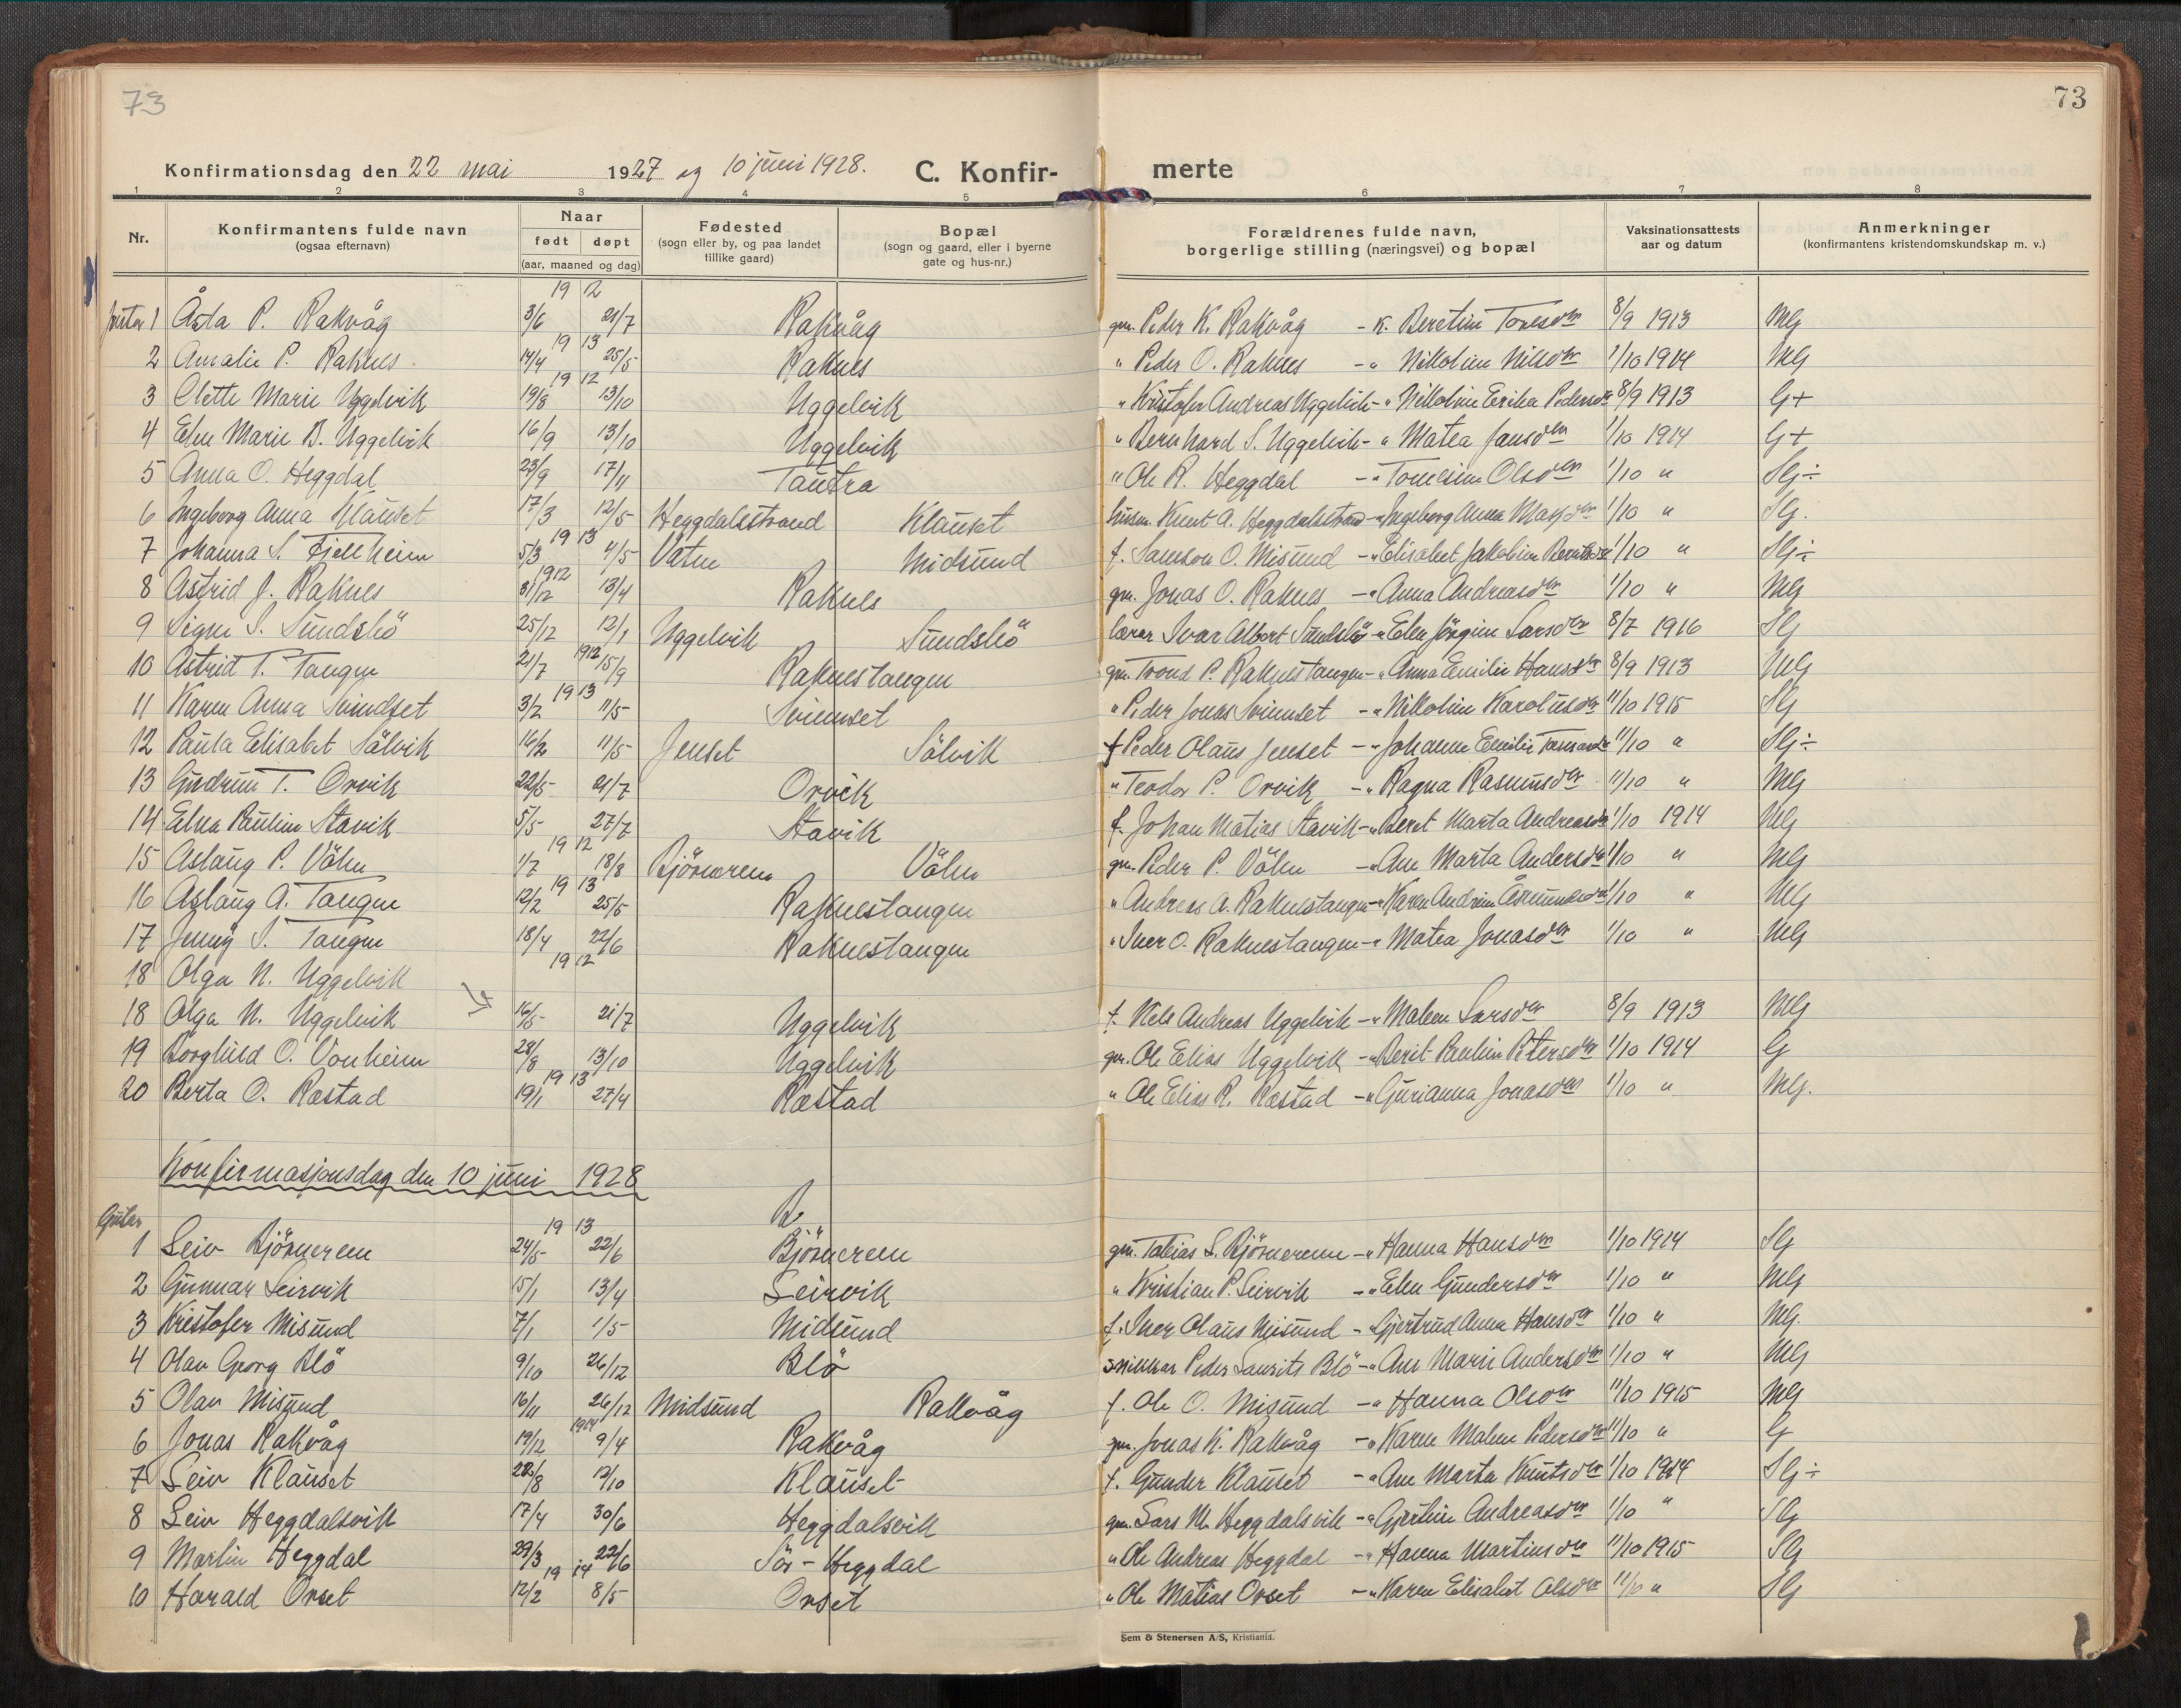 73
73
Konfirmationsdag den 22 mai 1927 og 10 juni 1928. C. Konfir- merte
1 2 3 4 5 6 7 8
Nr. Konfirmantens fulde navn (ogsaa efternavn) Naar født døpt (aar, maaned og dag) Fødested (sogn eller by, og paa landet tillike gaard) Bopæl (sogn og gaard, eller i byerne gate og hus-nr.) Forældrenes fulde navn, borgerlige stilling (næringsvei) og bopæl Vaksinationsattests aar og datum Anmerkninger (konfirmantens kristendomskundskap m. v.)
19 12
1 Åsta P. Rakvåg 3/6 21/7 Rakvåg gm. Peder K. Rakvåg - k. Beretine 8/9 1913 Mg
19 13
2 Amalie P. Raknes 14/4 25/5 Raknes " Peder O. Raknes - " Nikoline Nilsdtr 1/10 1914 Mg
19 12
3 Olette Marie Uggelvik 19/8 13/10 Uggelvik " Kristofer Andreas Uggelvik - " Nikoline Erika Pedersdtr 8/9 1913 G+
4 Elen Marie B. Uggelvik 16/9 13/10 Uggelvik " Bernhard S. Uggelvik - " Matea Jansdtr 1/10 1914 G+
5 Anna O. Heggdal 23/9 17/11 Tautra " Ole R. Heggdal - " Tomesine Olsdtr 1/10 " Slg÷
6 Ingeborg Anna Klauset 17/3 12/5 Heggdalsstrand Klauset husm. Knut A. Heggdalsstrand - " Ingeborg Anna 1/10 " Slg.
19 13
7 Johanna S. Fjellheim 5/3 4/5 Vatne Midsund f. Samson O. Misund - " Elisabet Jakobine 1/10 " Slg÷
1912
8 Astrid J. Raknes 31/12 13/4 Raknes gm. Jonas O. Raknes - " Anna Andreasdtr 1/10 " Mg
9 Signe S. Sundsbö 25/12 12/1 Uggelvik Sundsbö lærer Ivar Albert Sundsbö - " Elen Jörgine Larsdtr 8/7 1916 Slg
1912
10 Astrid T. Tangen 21/7 15/9 Raknestangen gm. Trond P. Raknestangen - " Anna Emilie Hansdtr 8/9 1913 Mg
19 13
11 Karen Anna Svindset 3/2 11/5 Svinnset " Peder Jonas Svinnset - " Nikoline Karolusdtr 11/10 1915 Slg
12 Paula Elisabet Sölvik 16/2 11/5 Jenset Sölvik f Peder Olaus Jenset - " Johanne Emilie 11/10 " Slg÷
13 Gudrun T. Orvik 22/5 21/7 Orvik " Teodor P. Orvik - " Ragna Rasmusdtr 11/10 " Mg
14 Elna Pauline Stavik 5/5 27/7 Stavik f. Johan Matias Stavik - " Beret Marta Andreasdtr 1/10 1914 Mg
19 12
15 Aslaug P. Völn 1/7 18/8 Björnerem Völn gm. Peder P. Völn - " Ane Marta Andersdtr 1/10 " Mg
19 13
16 Aslaug A. Tangen 12/2 25/5 Raknestangen " Andreas A. Raknestangen - " Karen Andrine 1/10 " Mg
17 Jenny I. Tangen 18/4 22/6 Raknestangen " Iver O. Raknestangen - " Matea Jonasdtr 1/10 " Mg
19 12
18 Olga N. Uggelvik
18 Olga N. Uggelvik 16/5 21/7 Uggelvik f. Nils Andreas Uggelvik - " Malene Larsdtr 8/9 1913 Mg
19 Borghild O. Vonheim 28/8 13/10 Uggelvik gm. Ole Elias Uggelvik - " Berit Pauline Petersdtr 1/10 1914 G
19 13
20 Berta O. Ræstad 19/1 27/4 Ræstad " Ole Elias R. Ræstad - " Gurianna Jonasdtr 1/10 " Mg.
Konfirmasjonsdag den 10 juni 1928
Gutar R
19 13
1 Leiv Björnerem 24/5 22/6 Björnerem gm. Tobias L. Björnerem - " Hanna Hansdtr 1/10 1914 Slg
2 Gunnar Seirvik 15/1 13/4 Seirvik " Kristian P. Seirvik - " Elen Gundersdtr 1/10 " Mg
3 Kristofer Misund 7/1 1/5 Midsund f. Iver Olaus Misund - " Gjertrud Anna Hansdtr 1/10 " Mg.
4 Olav Georg Blö 9/10 26/12 Blö snikkar Peder Laurits Blö - " Ane Marie Andersdtr 1/10 " Mg
5 Olav Misund 16/11 26/12 Midsund Rakvåg f. Ole O. Misund - " Hanna Olsdtr 11/10 1915 Mg
1914
6 Jonas Rakvåg 19/12 9/4 Rakvåg gm. Jonas K. Rakvåg - " Karen Malene Pedersdtr 11/10 " G
7 Leiv Klauset 22/8 12/10 Klauset f. Gunder Klauset - " Ane Marta Knutsdtr 1/10 1914 Slg÷
8 Leiv Heggdalsvik 17/4 30/6 Heggdalsvik gm. Lars M. Heggdalsvik - " Gjertine Andreasdtr 1/10 " Slg
9 Martin Heggdal 29/3 22/6 Sör-Heggdal " Ole Andreas Heggdal - " Hanna Martinsdtr 11/10 1915 Slg
19 14
10 Harald Orset 12/2 8/5 Orset " Ole Matias Orset - " Karen Elisabet Olsdtr 11/10 " Slg
Sem & Stenersen A/S, Kristiania.